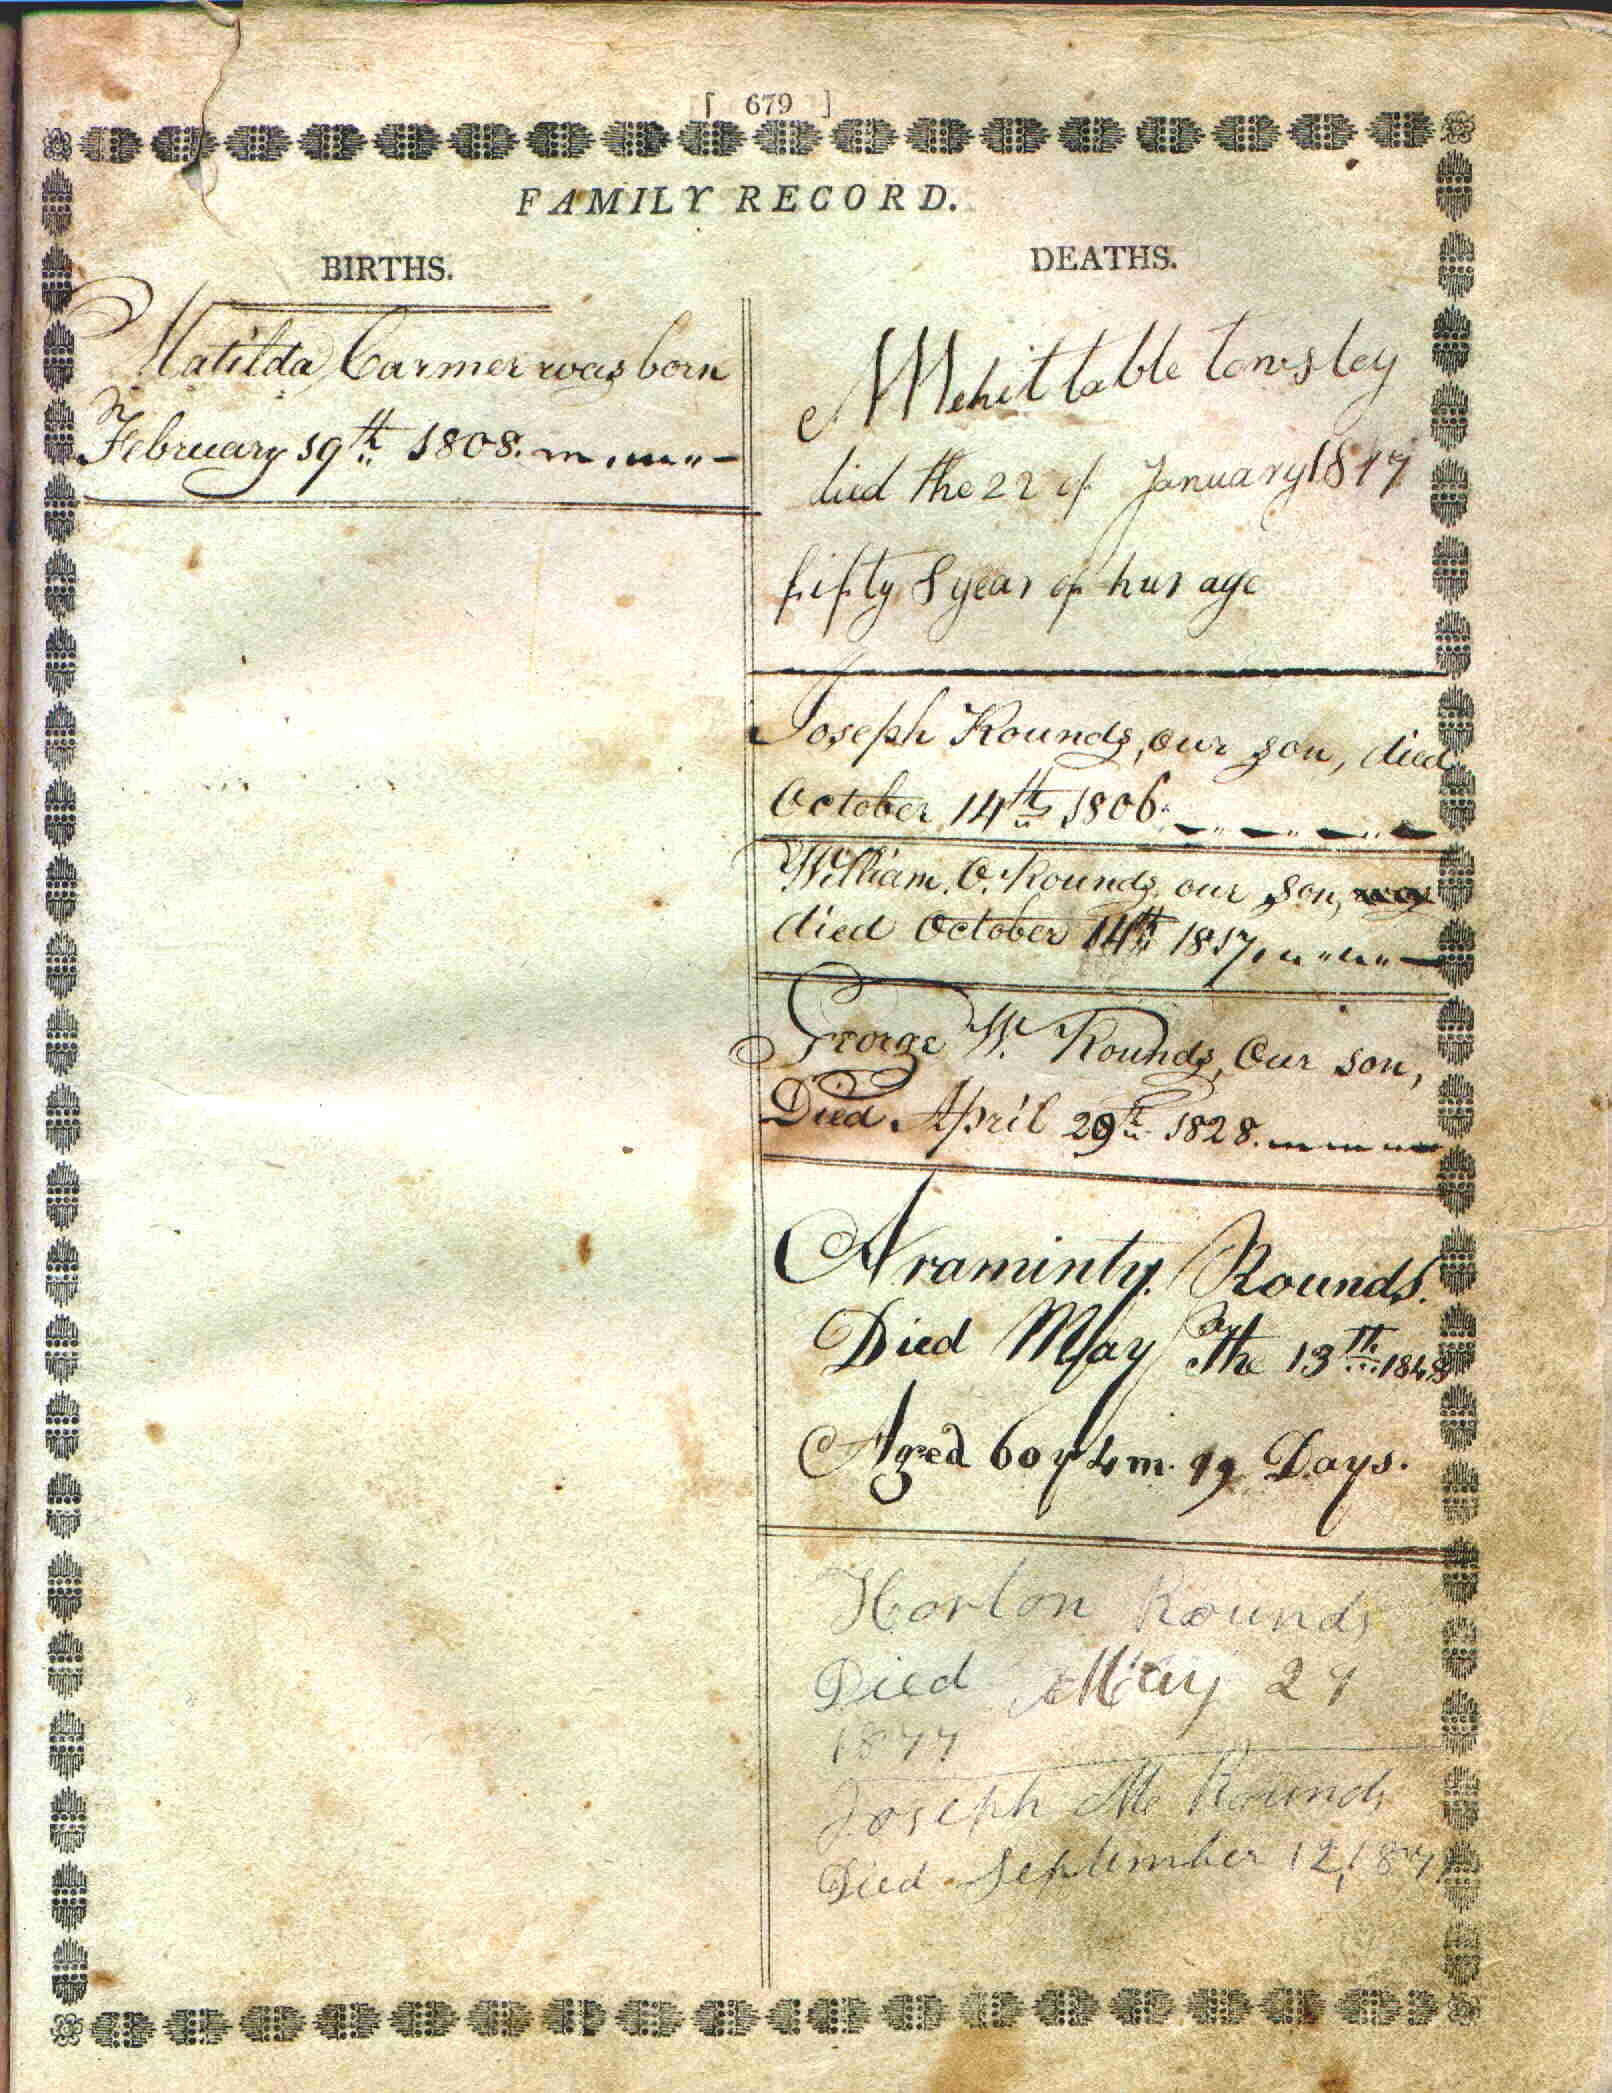 [ 679 ]
FAMILY RECORD.
BIRTHS.
Matilda Carmer was born
February 19th 1808.
DEATHS.
Mehittable Townsley
died the 22 of January 1817
fifty 8 year of hur age
Joseph Rounds, our son, died
October 14th 1806.
William. O. Rounds, our son,
died October 14th 1817.
George W. Rounds, Our son,
Died April 29th 1828.
Araminty. Rounds.
Died May the 13th 1848
Aged 60 y 4 m. 19 Days.
Horton Rounds
Died May 27
1877
Joseph Mc Rounds
Died September 12, 187